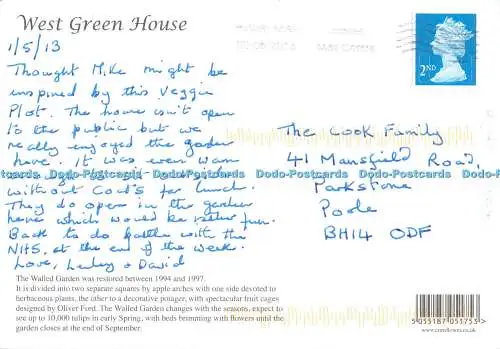 West Green House
1/5/13
Thought Mike might be
inspired by this Veggie
Plot. The house isn't open
to the public but we
really enjoyed the garden
here. It was even warm
without Coats for lunch.
They do opera in the garden
here which would be rather fun.
Back to do battle with the
NHS, at the end of the week.
Love, Lesley & David
The Walled Garden was restored between 1994 and 1997.
It is divided into two separate squares by apple arches with one side devoted to
herbaceous plants, the other to a decorative potager, with spectacular fruit cages
designed by Oliver Ford. The Walled Garden changes with the seasons, expect to
see up to 10,000 tulips in early Spring, with beds brimming with flowers until the
garden closes at the end of September.
2ND
The Cook Family
41 Mansfield Road,
Parkstone
Poole
BH14 0DF
Dodo-Postcards Dodo-Postcards Dodo-Postcards Dodo-Postcards Dodo-Postcards
5 055187 051753 >